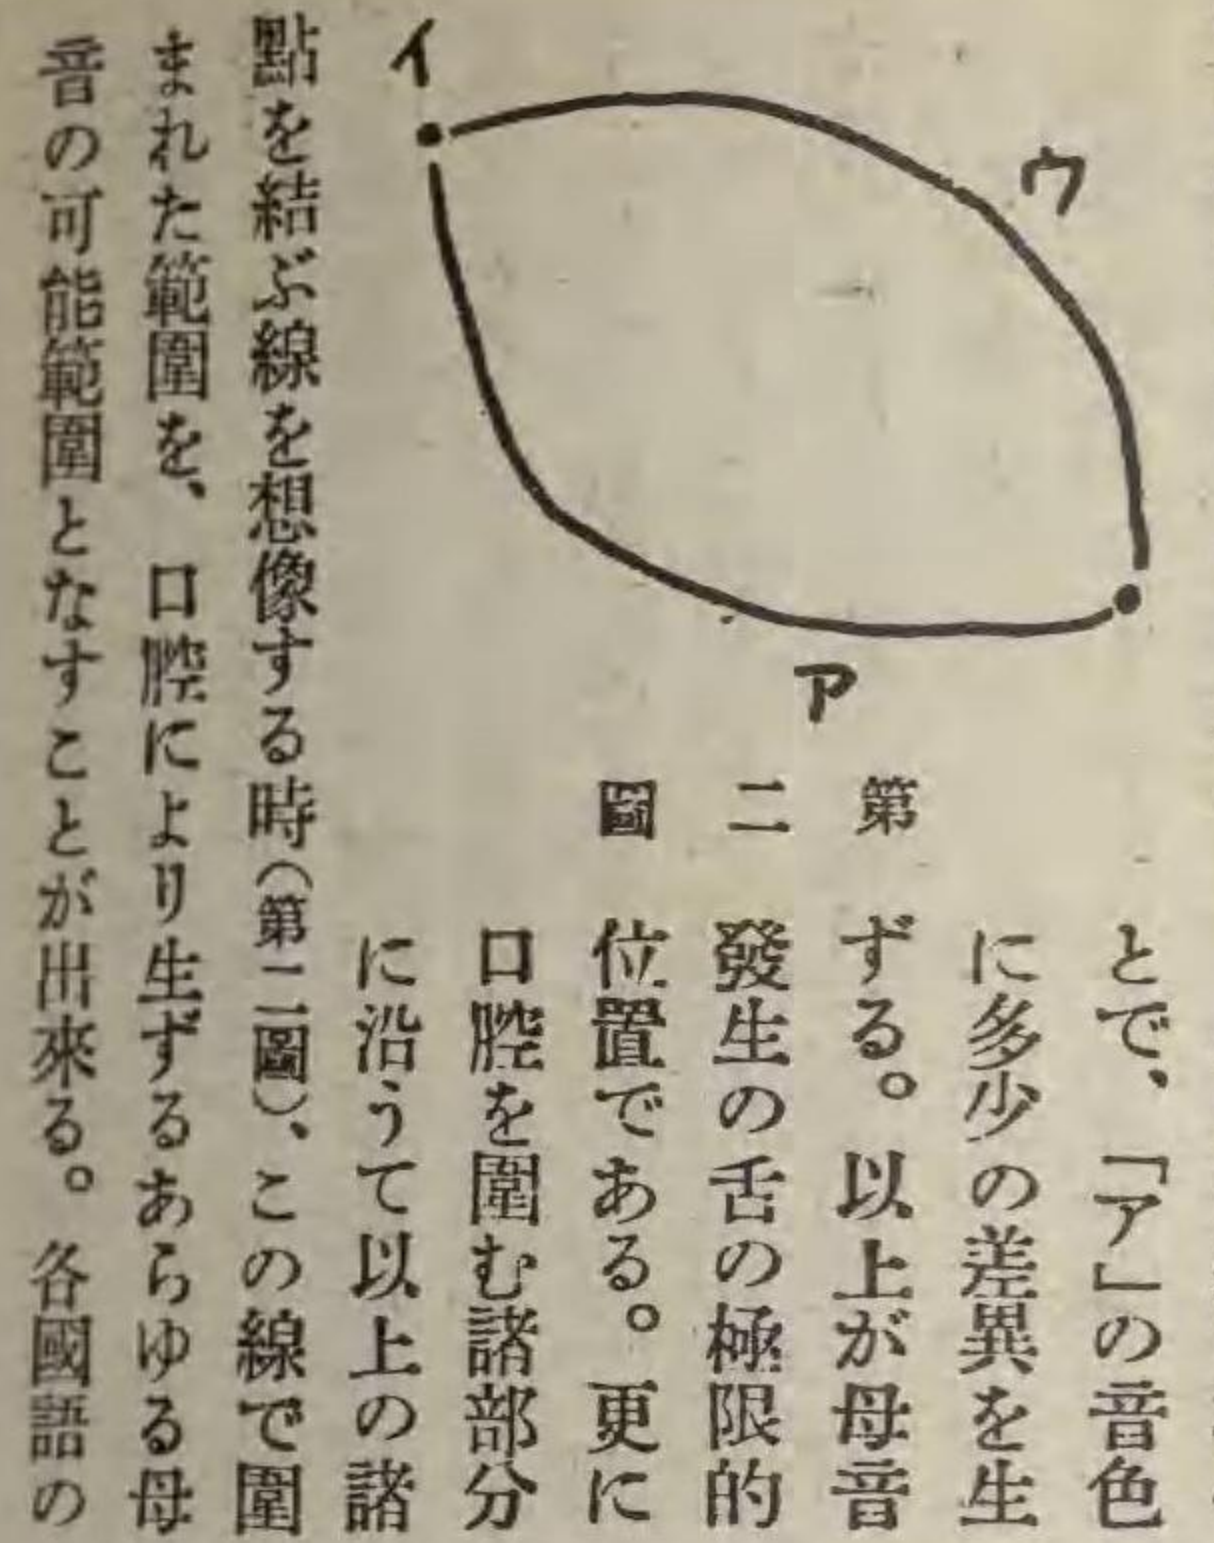 イ
ウ
ア
第二圖
とで、「ア」の音色
に多少の差異を生
ずる。以上が母音
發生の舌の極限的
位置である。更に
口腔を圍む諸部分
に沿うて以上の諸
點を結ぶ線を想像する時(第二圖)、この線で圍
まれた範圍を、口腔により生ずるあらゆる母
音の可能範圍となすことが出來る。各國語の